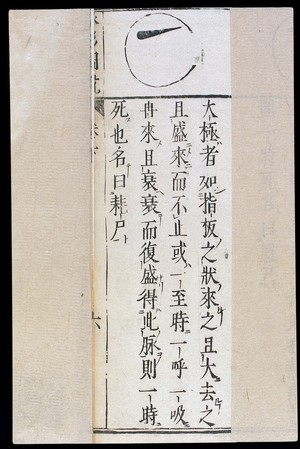 太極者如指板之狀來之且大去之
且盛來而不止或一至時一呼一吸
再來且衰衰而復盛得此脉則一時
死也名曰耗尸
六